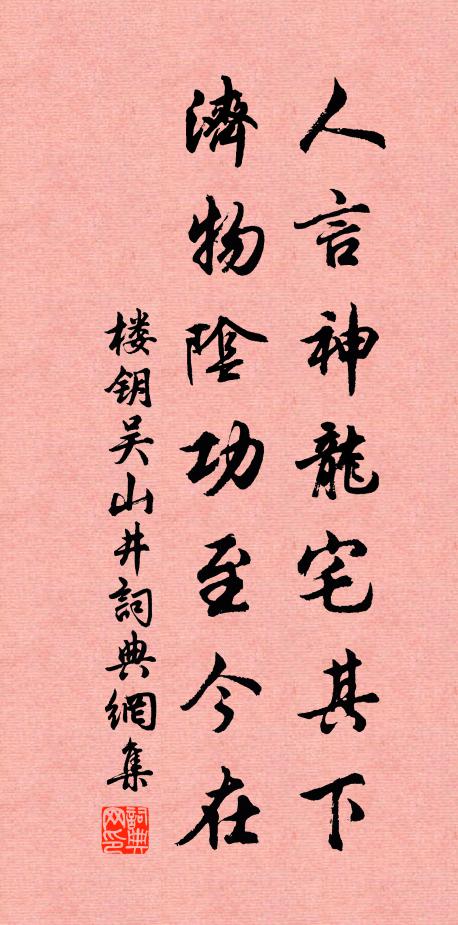 人言神龍宅其下
濟物陰功至今在
楼钥吴山井詞典網集
詞典网印